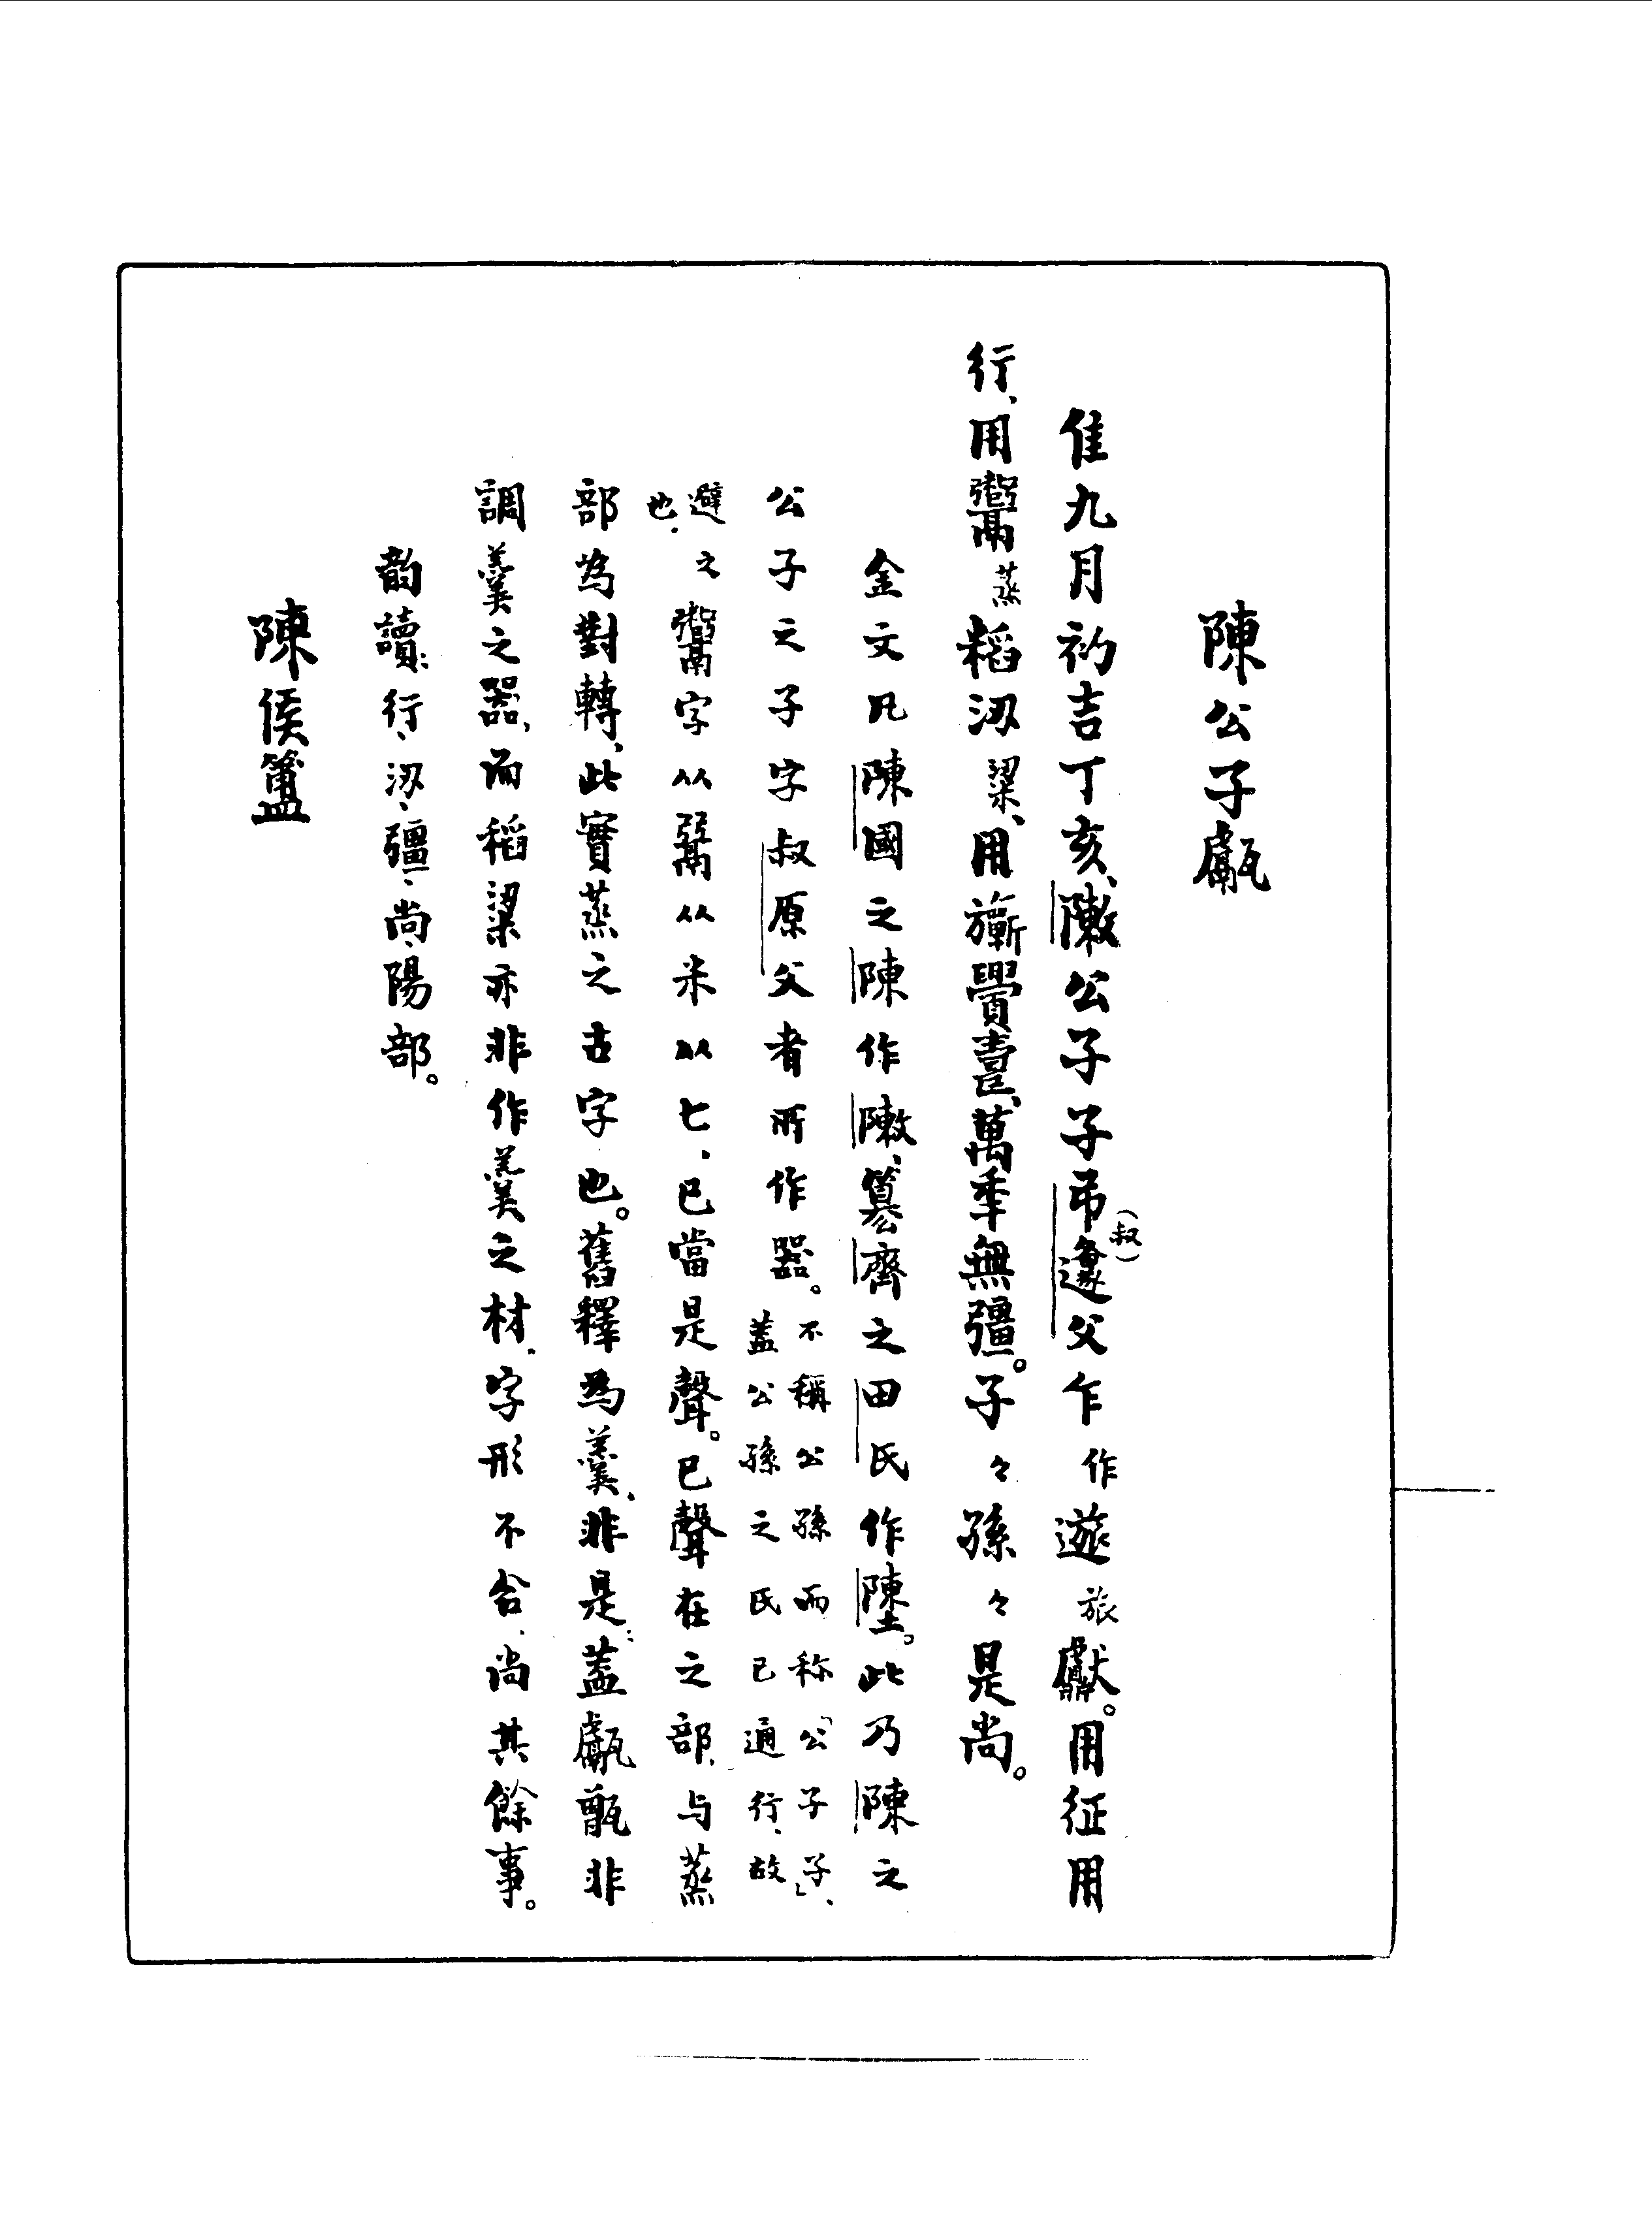 陳公子甗
隹九月初吉丁亥、敶公子子弔(叔)邍父乍作遊旅獻。用征用
行、用蒸稻汈粱、用旂眉壽、萬年無彊。子々孫々是尚。
金文凡陳國之陳作敶、篡齊之田氏作塦。此乃陳之
公子之子字叔原父者所作器。不稱公孫而称「公子子」、蓋公孫之氏已通行、故
避之也、字从䰜从米从匕、巳當是聲。巳聲在之部、与蒸
部為對轉、此實蒸之古字也。舊釋為羹、非是:蓋甗甑非
調羹之器、而稻粱亦非作羹之材、字形不合、尚其餘事。
韵讀:行、汈、彊、尚、陽部。
陳侯簠